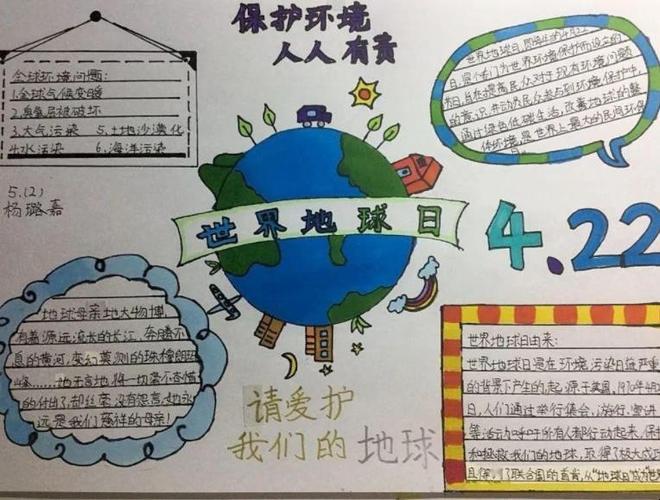 保护环境
人人有责
全球环境问题:
1.全球气候变暖
2.臭氧层被破坏
3.大气污染 5.土地沙漠化
4.水污染 6.海洋污染
5.(2)
杨璐嘉
世界地球日,即每年的4月22
日,是专门为世界环境保护而设立的
节日,旨在提高民众对于现有环境问题
的意识,并动员民众参与到环保
通过绿色低碳生活,改善地球的整
体环境,是世界上最大的民间环保
世界地球日
4.22
地球母亲地大物博,
有着源远流长的长江,奔腾不
息的黄河,变幻莫测的珠穆朗玛
峰……她无言地将一切毫不吝惜
的付出了,却丝毫没有怨言,她永
远是我们慈祥的母亲!
世界地球日由来:
世界地球日是在环境污染日益严重
的背景下产生的,起源于美国,1970年4月
日,人们通过举行集会、游行、宣讲
等活动呼吁所有人都行动起来,保
和拯救我们的地球,取得了极大成
且得了联合国的首肯,从"地球日"成为
请爱护
我们的地球